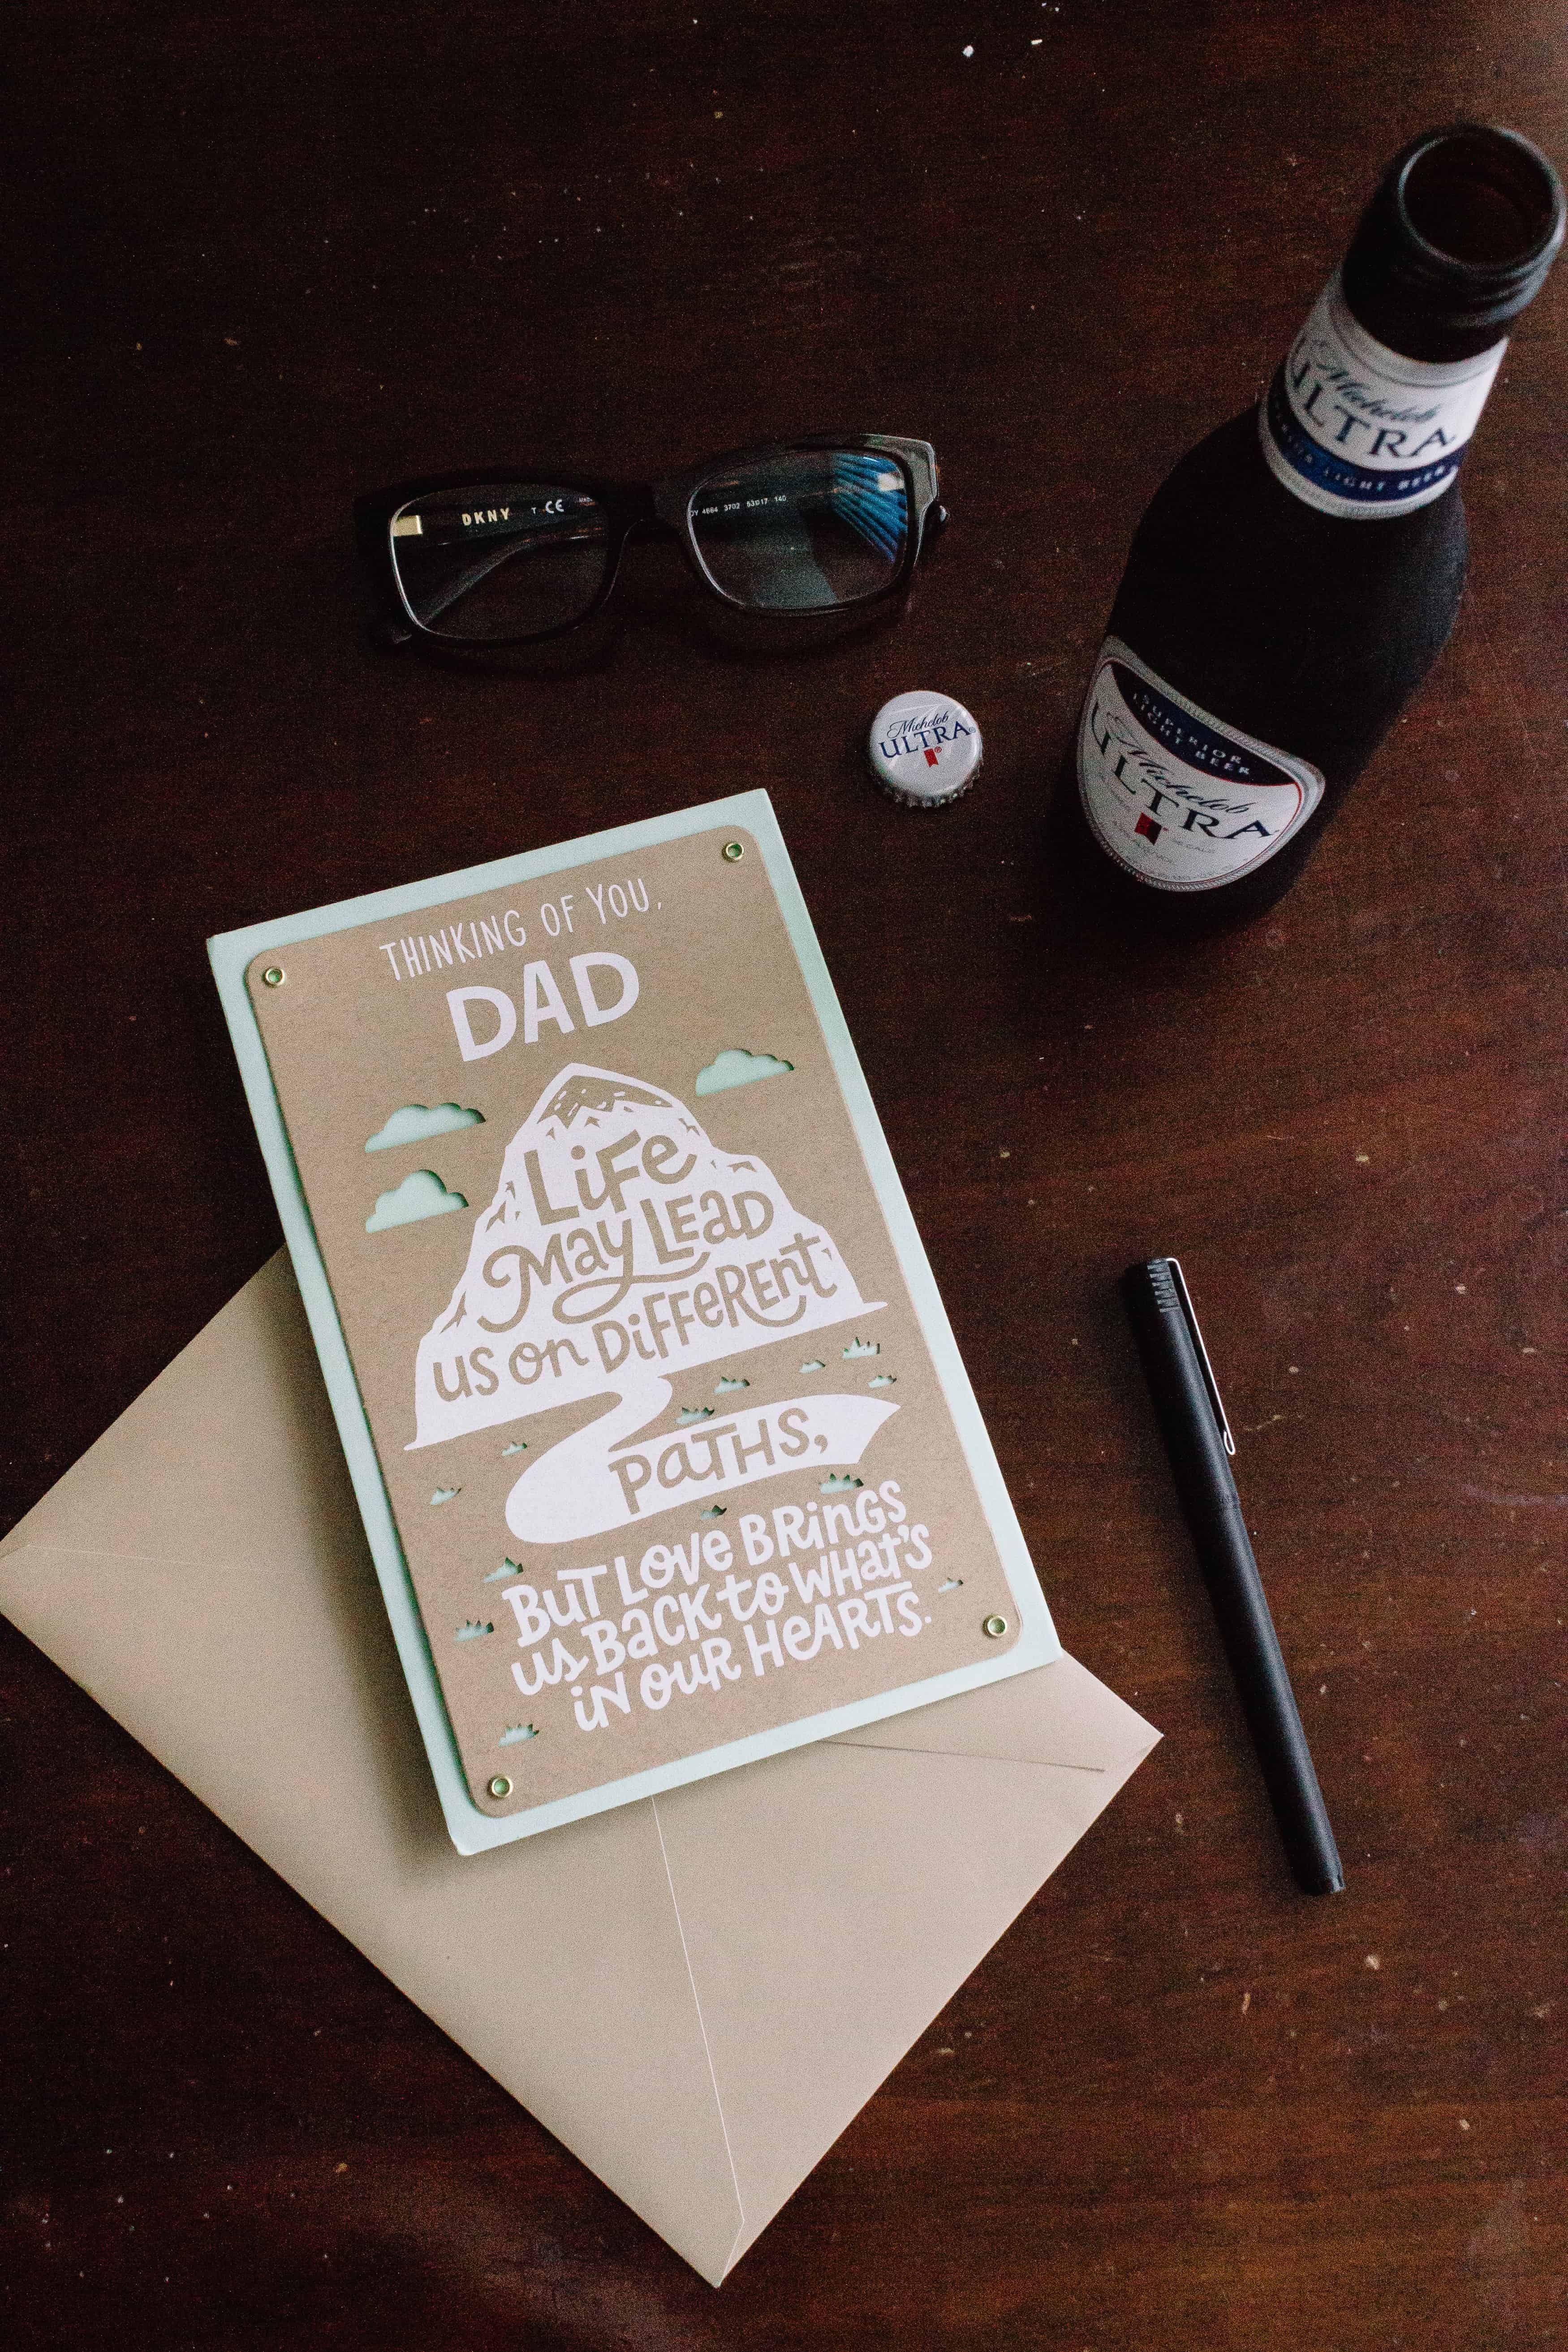 Michelob
ULTRA
SUPERIOR LIGHT BEER
DKNY T CE
DY 4664 3702 53□17 140
Michelob
ULTRA
SUPERIOR
LIGHT BEER
Michelob
ULTRA
THINKING OF YOU,
DAD
LiFe
May LEaD
us on DiFFeREnt
PaTHS,
BuT LoVe BRinGS
us BaCK to WHat's
iN ouR HeARTS.